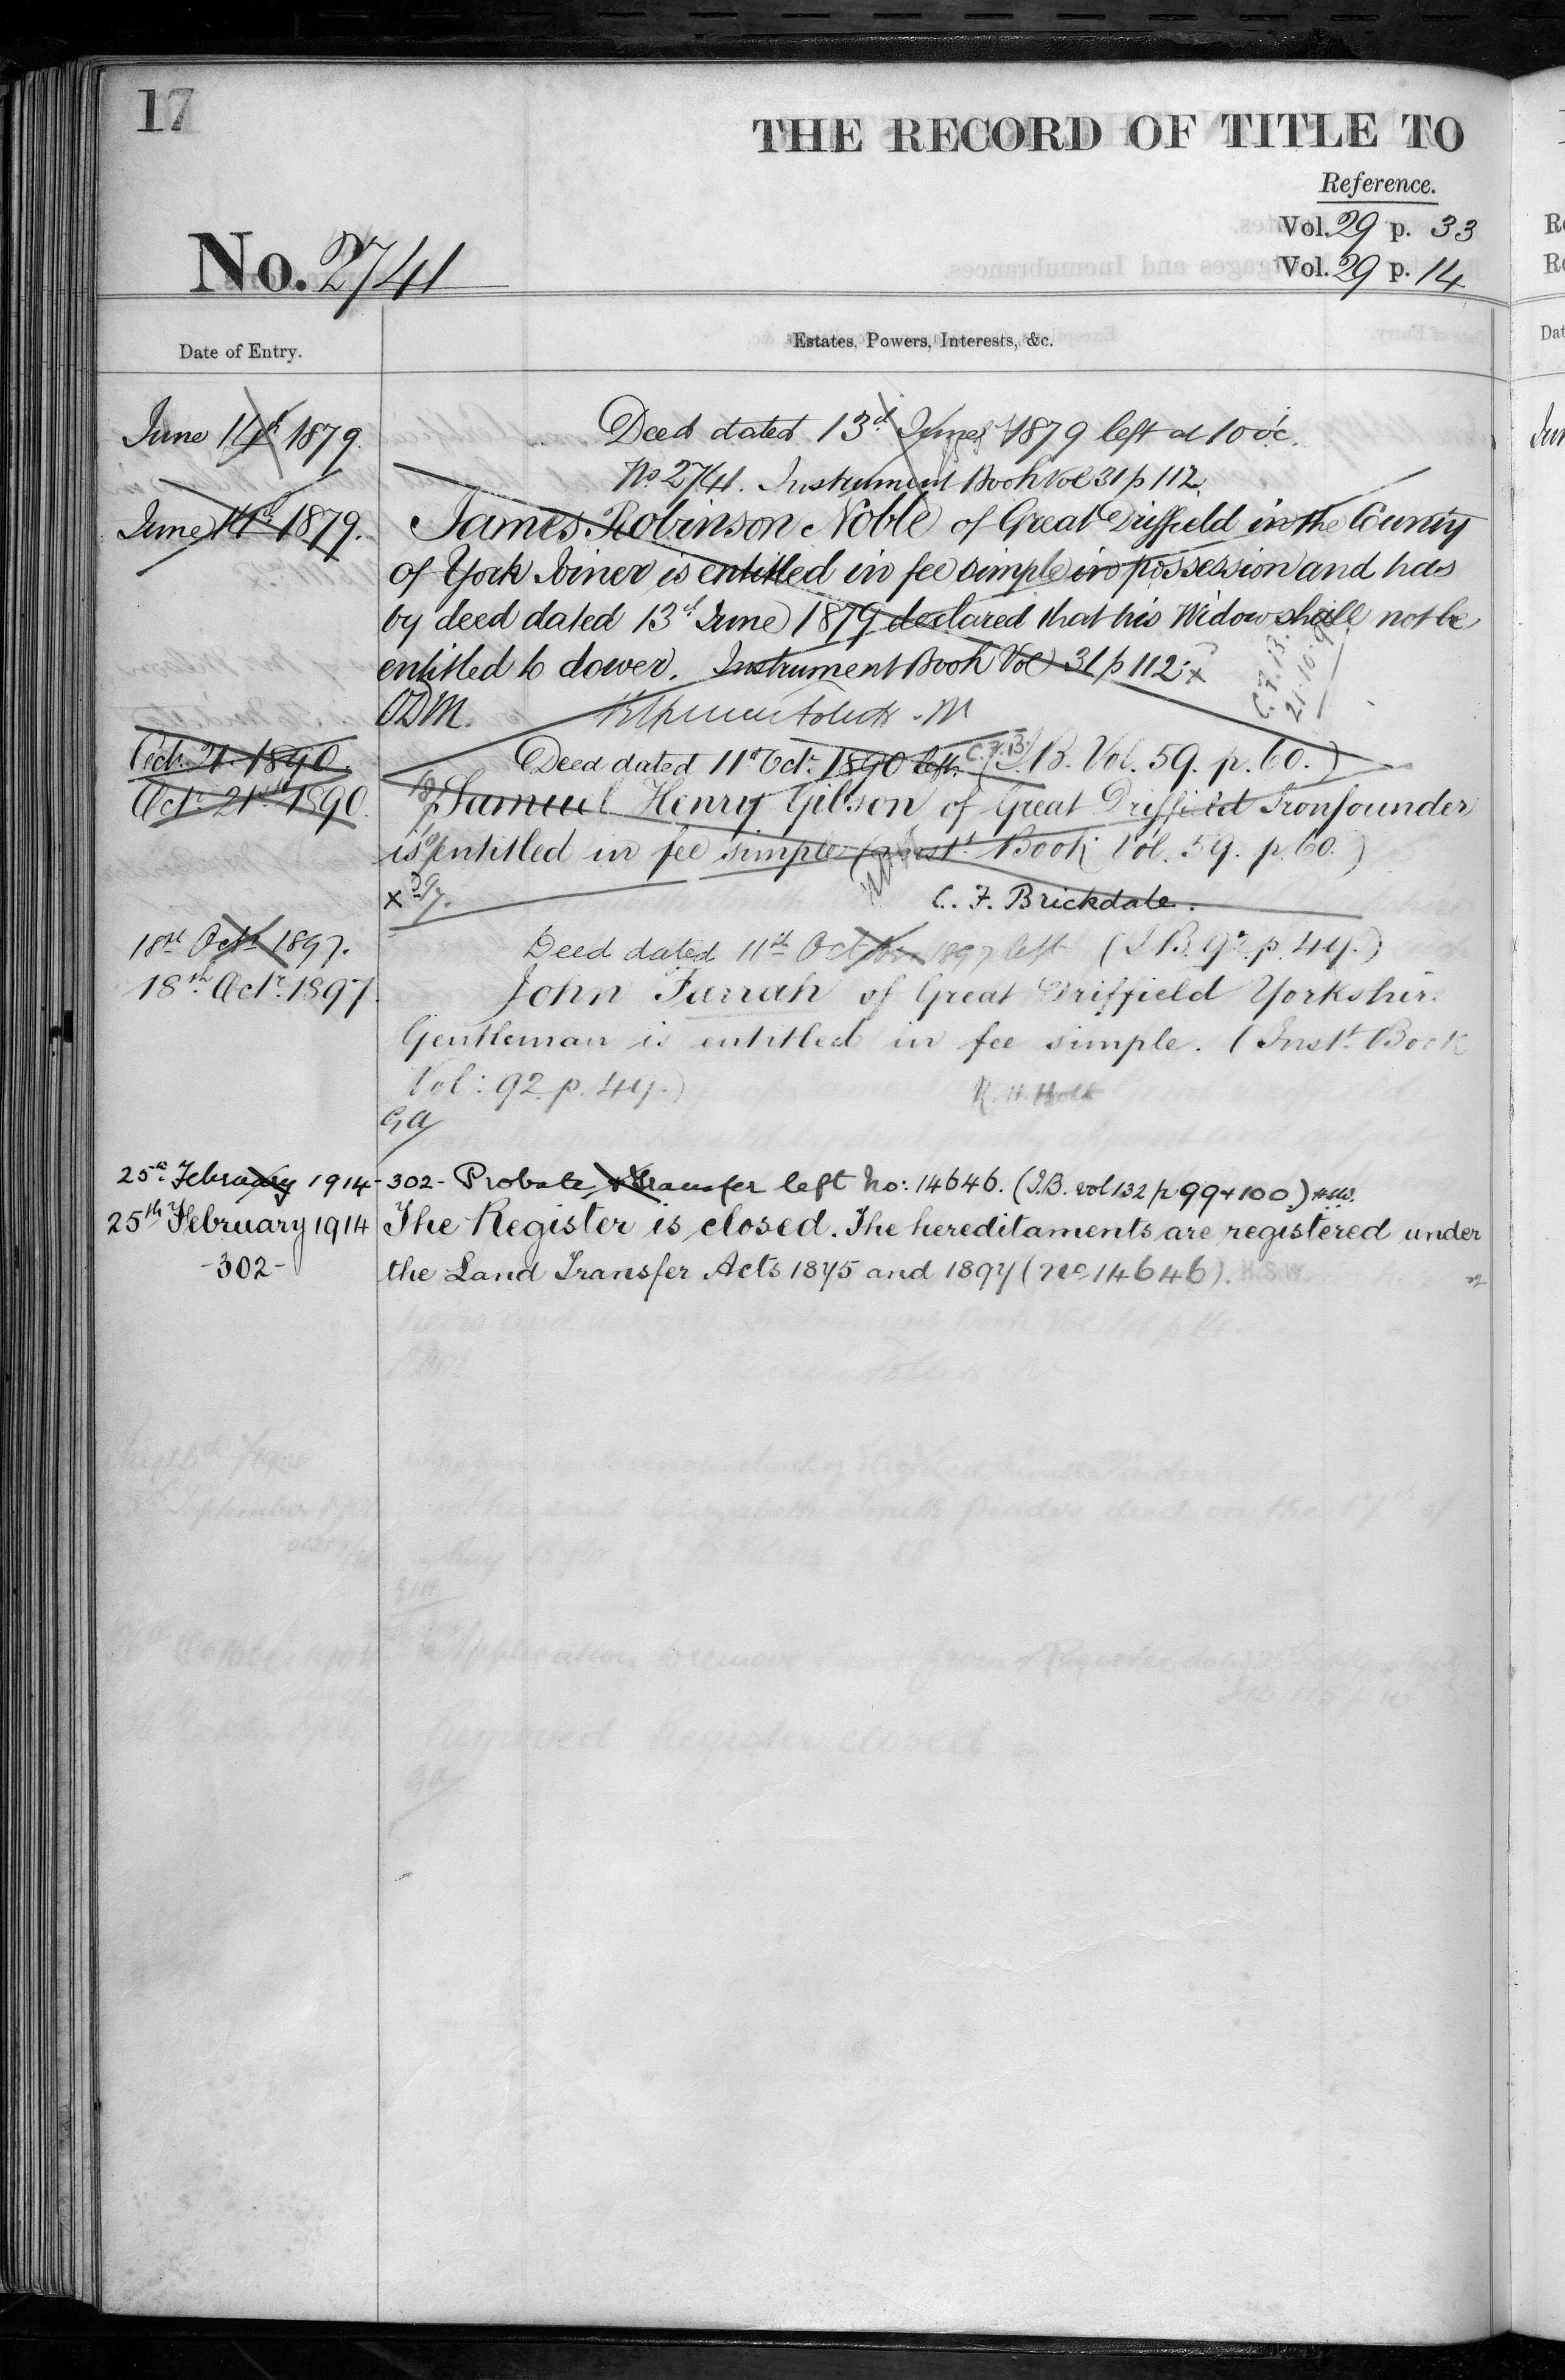 17
THE RECORD OF TITLE TO
Reference.
Vol. 29 p. 33
No. 2741
Vol. 29 p. 14
Date of Entry.
Estates, Powers, Interests, &c.
June 14th 1879.
Deed dated 13th June 1879 left at 10 o'c.
No. 2741. Instrument Book Vol 31 p 112.
June 14th 1879.
James Robinson Noble of Great Driffield in the County
of York Joiner is entitled in fee simple in possession and has
by deed dated 13th June 1879 declared that his Widow shall not be
entitled to dower. Instrument Book Vol 31 p 112. x
C.F.B.
ODM.
Octr. 21. 1890.
Deed dated 11th Octr. 1890 left. C.F.B. (I.B. Vol. 59. p. 60.)
Octr. 21st 1890.
Samuel Henry Gibson of Great Driffield Ironfounder
is entitled in fee simple (Inst. Book Vol. 59. p. 60.)
x
C. F. Brickdale.
18th Octr. 1897.
Deed dated 11th Octr. 1897 left (I.B. 92. p. 49.)
18th Octr. 1897.
John Farrah of Great Driffield Yorkshire
Gentleman is entitled in fee simple. (Inst. Book
Vol: 92. p. 49.)
R. H. Holt
GA
25th February 1914
302- Probate & Transfer left No: 14646. (I.B. vol 132 p 99 + 100) H.S.W.
25th February 1914
The Register is closed. The hereditaments are registered under
-302-
the Land Transfer Acts 1875 and 1897 (No. 14646). H.S.W.